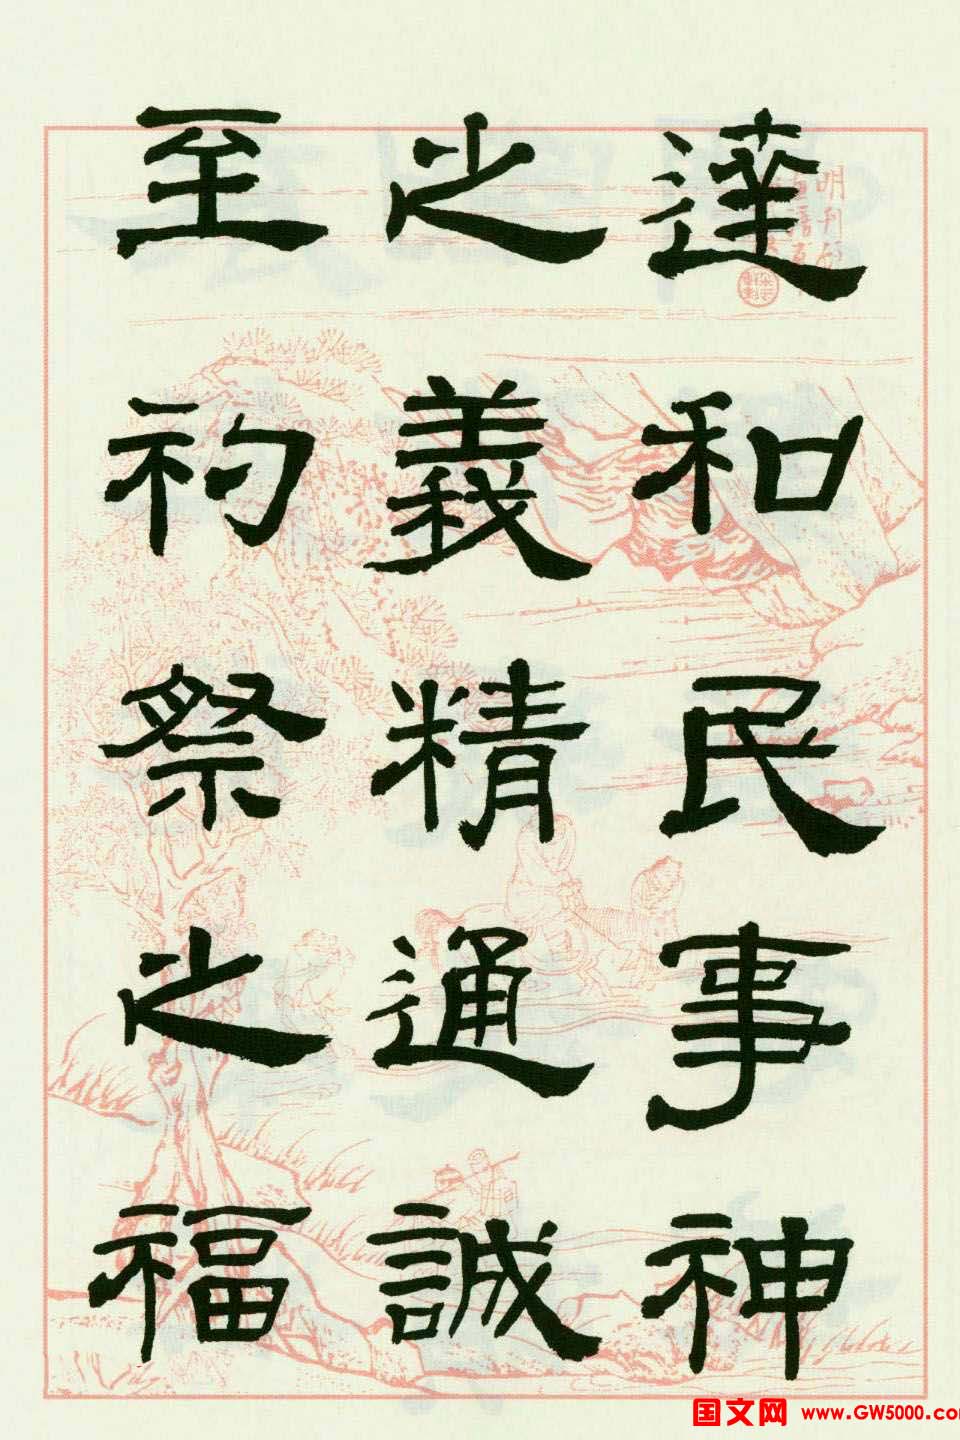 達和民事神
之義精通誠
至礿祭之福
国文网 www.GW5000.com